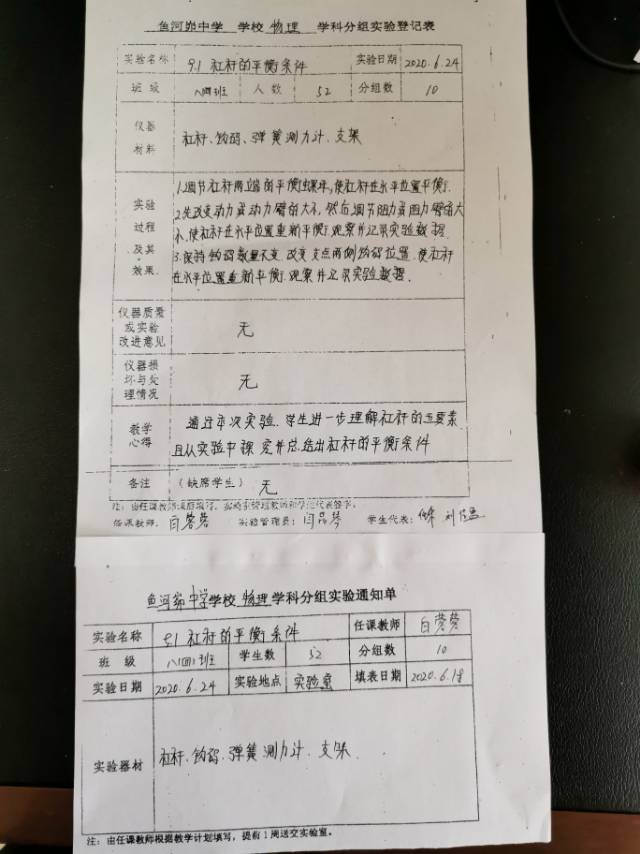 鱼河峁中学 学校 物理 学科分组实验登记表
实验名称 9.1 杠杆的平衡条件 实验日期 2020.6.24
班级 八(四)班 人数 52 分组数 10
仪器材料 杠杆、钩码、弹簧测力计、支架
实验过程及其效果 1.调节杠杆两端的平衡螺母,使杠杆在水平位置平衡.
2.先改变动力或动力臂的大小,然后调节阻力或阻力臂的大
小,使杠杆在水平位置重新平衡,观察并记录实验数据
3.保持钩码数量不变,改变支点两侧钩码位置,使杠杆
在水平位置重新平衡,观察并记录实验数据.
仪器质量或实验改进意见 无
仪器损坏与处理情况 无
教学心得 通过本次实验,学生进一步理解杠杆的五要素,
且从实验中探究并总结出杠杆的平衡条件
备注 (缺席学生) 无
任课教师: 白蓉蓉 实验管理员: 闫品琴 学生代表:
鱼河峁中学学校 物理学科分组实验通知单
实验名称 9.1 杠杆的平衡条件 任课教师 白蓉蓉
班级 八(四)班 学生数 52 分组数 10
实验日期 2020.6.24 实验地点 实验室 填表日期 2020.6.18
实验器材 杠杆、钩码、弹簧测力计、支架
注:由任课教师根据教学计划填写,提前1周送交实验室。